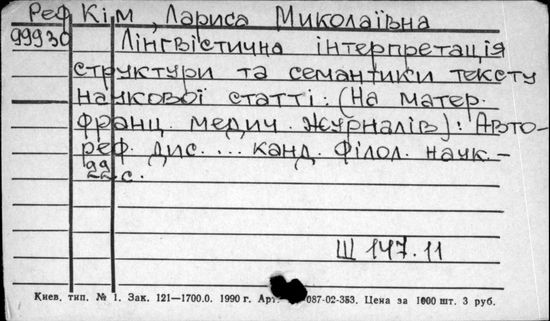 Реф Кім, Лариса Миколаївна
99930 Лінгвістична інтерпретація
структури та семантики тексту
наукової статті: (На матер.
франц. медич. журналів): Авто-
реф. дис. ... канд. філол. наук.-
22 с.
Ш 147.11
Киев, тип. № 1. Зак. 121—1700.0. 1990 г. Арт. 087-02-353. Цена за 1000 шт. 3 руб.